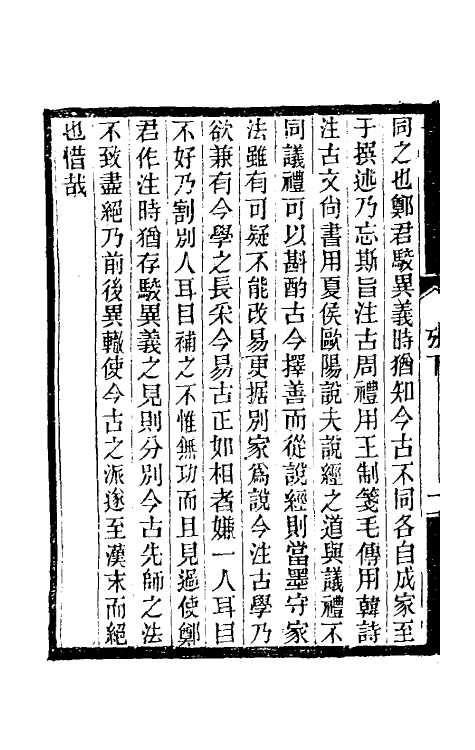 同之也鄭君駮異義時猶知今古不同各自成家至
于撰述乃忘斯旨注古周禮用王制箋毛傳用韓詩
注古文尙書用夏侯歐陽說夫說經之道與議禮不
同議禮可以斟酌古今擇善而從說經則當墨守家
法雖有可疑不能改易更据別家爲說今注古學乃
欲兼有今學之長采今易古正如相者嫌一人耳目
不好乃割別人耳目補之不惟無功而且見過使鄭
君作注時猶存駮異義之見則分別今古先師之法
不致盡絕乃前後異轍使今古之派遂至漢末而絕
也惜哉